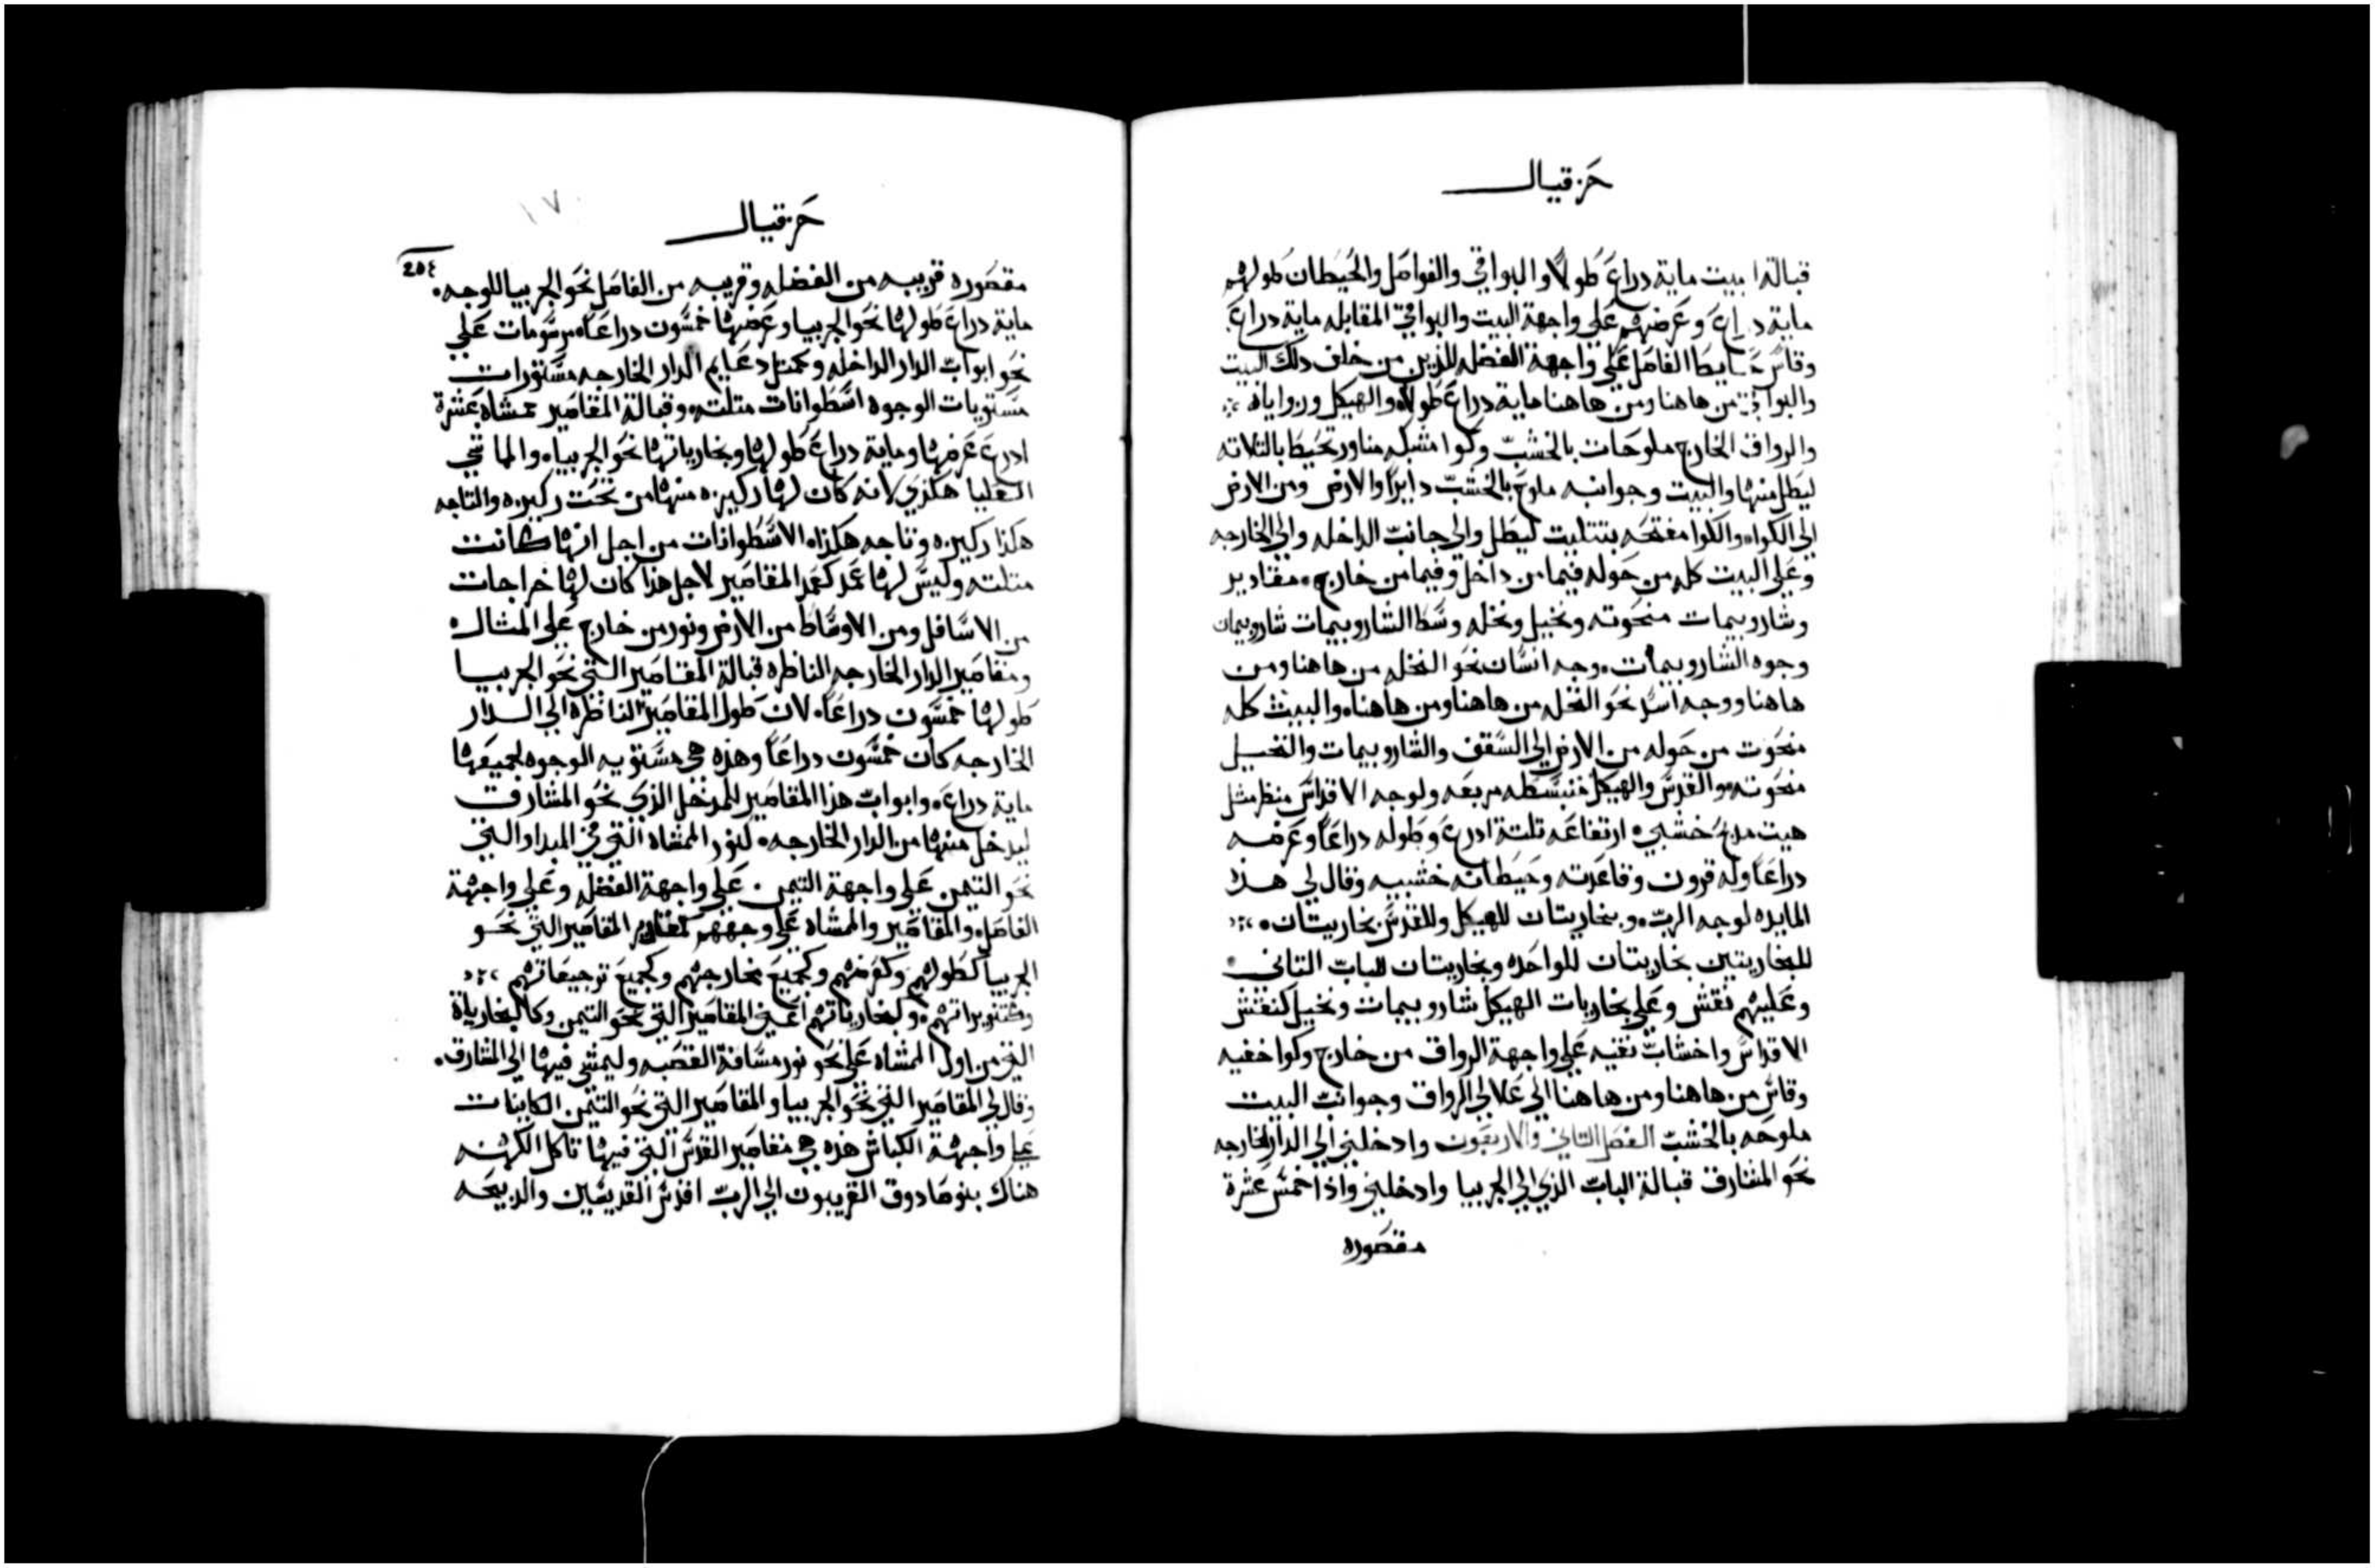 حزقيال
قبالة ا بيت ماية دراع طولا والبواقي والفواصل والحيطان طولهم
ماية دراع وعرضهم علي واجهة البيت والبواقي المقابله ماية دراع
وقاس حايط الفاصل علي واجهة الفضله للذين من خلف دلك البيت
والبواقي من هاهنا ومن هاهنا ماية دراع طولاً والهيكل وزواياه
والرواق الخارج ملوحات بالخشب وكوا مشبكه مناور تحيط بالتلاته
ليطل منها والبيت وجوانبه ملوح بالخشب دايراً والارض ومن الارض
الي الكوا والكوا مفتحه بتتليت ليطل والي جانب الداخله والي الخارجه
وعلي البيت كله من حوله فيما من داخل وفيما من خارج مقادير
وشاروبيمات منحوته ونخيل ونخله وسط الشاروبيمات شاروبيمان
وجوه الشاروبيمات وجه انسان نحو النخله من هاهنا ومن
هاهنا ووجه اسد نحو النخله من هاهنا ومن هاهنا والبيت كله
منحوت من حوله من الارض الي السقف والشاروبيمات والنخيل
منحوته والقدس والهيكل منبسطه مربعه ولوجه الاقداس منظر مثل
هيت مدبح خشبي ارتفاعه تلتة ادرع وطوله دراعاً وعرضه
دراعاً وله قرون وقاعدته وحيطانه خشبيه وقال لي هذه
المايده لوجه الرب وبنخاريتان للهيكل وللقدس بخاريتان
للبخاريتين بخاريتان للواحده وبخاريتان للباب التاني
وعليهم نقش وعلي بخاريات الهيكل شاروبيمات ونخيل كنقش
الاقداس واخشاب نقيه علي واجهة الرواق من خارج وكوا خفيه
وقاس من هاهنا ومن هاهنا الي علالي الرواق وجوانب البيت
ملوحه بالخشب الفصل التاني والاربعون وادخلني الي الدار الخارجه
نحو المشارق قبالة الباب الذي الي الجربيا وادخلني واذا خمس عشرة
مقصوره
حزقيال
٢٥٤
مقصوره قريبه من الفضله وقريبه من الفاصل نحو الجربيا للوجه
ماية دراع طولها نحو الجربيا وعرضها خمسون دراعاً مرسومات علي
نحو ابواب الدار الداخله وكمتل دعايم الدار الخارجه مستورات
مستويات الوجوه اسطوانات متلته وقبالة المقاصير ممشاه عشرة
ادرع عرضها وماية دراع طولها وبخارياتها نحو الجربيا والماشي
العليا هكذي لانه كان لها ركيزه منها من تحت ركيزه والتاجه
هكذا ركيزه وتاجه هكذا الاسطوانات من اجل انها كانت
متلته وليس لها عمد كعمد المقاصير لاجل هذا كان لها خراجات
من الاسافل ومن الاوساط من الارض ونور من خارج علي المثال
ومقاصير الدار الخارجه الناظره قبالة المقاصير التي نحو الجربيا
طولها خمسون دراعاً لان طول المقاصير الناظره الي الدار
الخارجه كان خمسون دراعاً وهذه هي مستويه الوجوه لجميعها
ماية دراع وابواب هذا المقاصير للمدخل الذي نحو المشارق
ليدخل منها من الدار الخارجه كنور الممشاه التي في المبدا والتي
نحو التيمن علي واجهة التيمن علي واجهة الفضله وعلي واجهة
الفاصل والمقاصير والممشاه علي وجههم المقاصير التي نحو
الجربيا كطولهم وكعرضهم وكجميع مخارجهم وكجميع ترجيعاتهم
وكتنويراتهم وكبخارياتهم اعني المقاصير التي نحو التيمن وكالبخارياة
التي من اول الممشاه علي نحو نور مسافة القصبه وليمشي فيها الي المشارق
وقال لي المقاصير التي نحو الجربيا والمقاصير التي نحو التيمن الكاينات
علي واجهة الكباش هذه هي مقاصير القدس التي فيها تاكل الكهنه
هناك بنو صادوق القريبون الي الرب اقداس القديسين والدبيحه